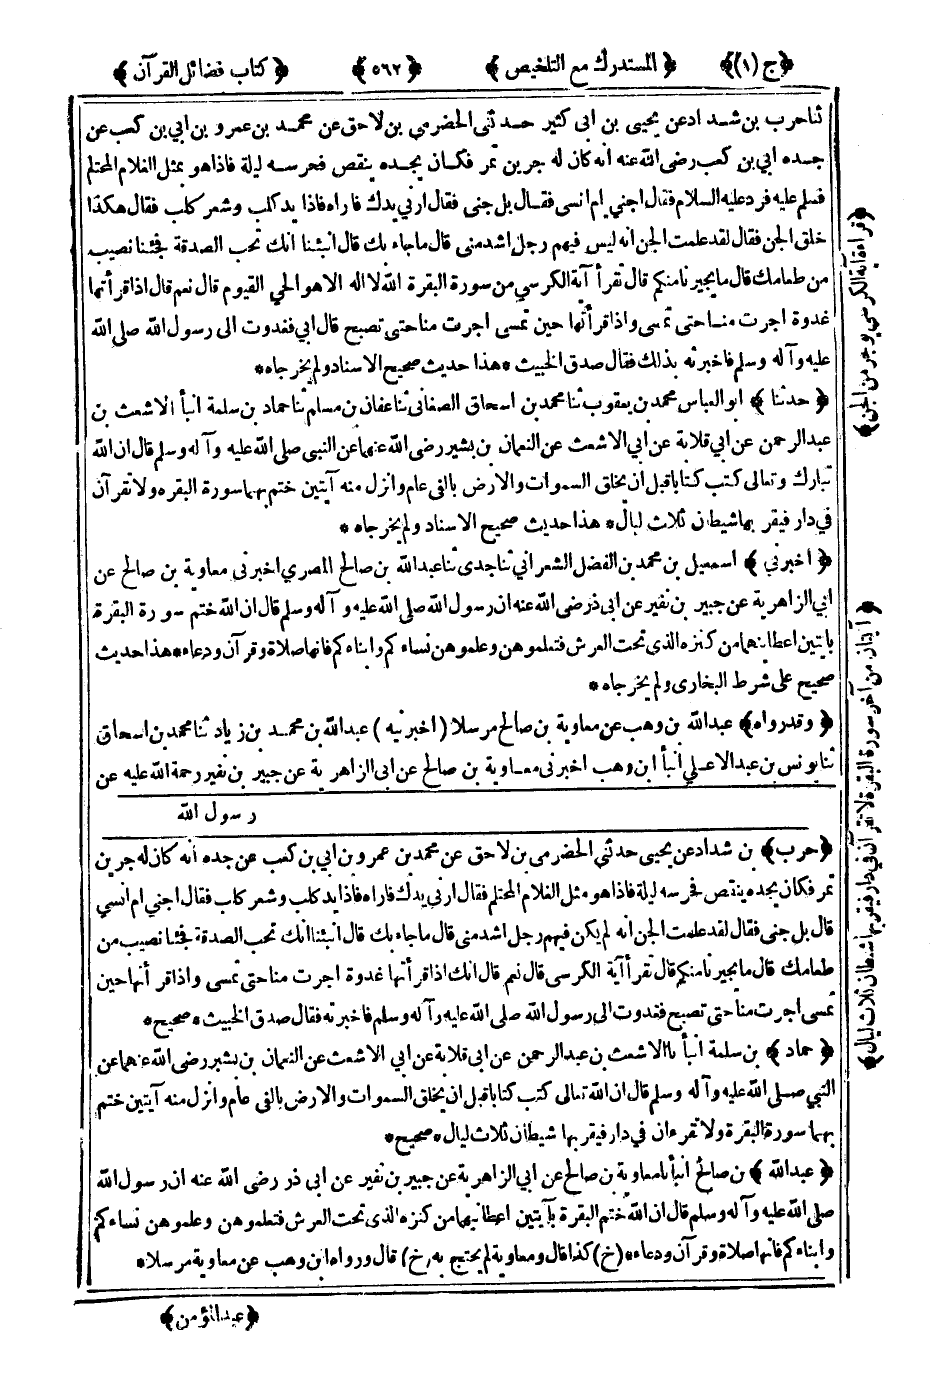 ﴿ج (١)﴾ ﴿المستدرك مع التلخيص﴾ ﴿٥٦٢﴾ ﴿كتاب فضائل القرآن﴾
ثنا حرب بن شداد عن يحيى بن ابى كثير حدثنى الحضرمى بن لاحق عن محمد بن عمرو بن ابي بن كعب عن
جده ابي بن كعب رضى الله عنه أنه كان له جرين تمر فكان يجده ينقص فحرسه ليلة فاذا هو بمثل الغلام المحتلم
فسلم عليه فرد عليه السلام فقال اجني ام انسى فقال بل جنى فقال ارني يدك فاراه فاذا يد كلب وشعر كلب فقال هكذا
خلق الجن فقال لقد علمت الجن انه ليس فيهم رجل اشد منى قال ما جاء بك قال انبئنا انك تحب الصدقة فجئنا نصيب
من طعامك قال ما يجيرنا منكم قال تقرأ آية الكرسي من سورة البقرة الله لا اله الا هو الحي القيوم قال نعم قال اذا قرأتها
غدوة اجرت منا حتى تمسى واذا قرأتها حين تمسى اجرت منا حتى تصبح قال ابي فغدوت الى رسول الله صلى الله
عليه وآله وسلم فاخبرته بذلك فقال صدق الخبيث * هذا حديث صحيح الاسناد ولم يخرجاه *
﴿ حدثنا ﴾ ابو العباس محمد بن يعقوب ثنا محمد بن اسحاق الصغانى ثنا عفان بن مسلم ثنا حماد بن سلمة انبأ الاشعث بن
عبد الرحمن عن ابي قلابة عن ابي الاشعث عن النعمان بن بشير رضى الله عنهما عن النبى صلى الله عليه وآله وسلم قال ان الله
تبارك وتعالى كتب كتابا قبل ان يخلق السموات والارض بالفى عام وانزل منه آيتين ختم بهما سورة البقره ولا تقرآن
في دار فيقر بها شيطان ثلاث ليال * هذا حديث صحيح الاسناد ولم يخرجاه *
﴿ اخبرني ﴾ اسمعيل بن محمد بن الفضل الشعراني ثنا جدى ثنا عبد الله بن صالح المصري اخبرنى معاوية بن صالح عن
ابي الزاهرية عن جبير بن نفير عن ابى ذر ضى الله عنه ان رسول الله صلى الله عليه وآله وسلم قال ان الله ختم سورة البقرة
بايتين اعطانيهما من كنزه الذى تحت العرش فتعلموهن وعلموهن نساءكم وابناءكم فانها صلاة وقرآن ودعاء * هذا حديث
صحيح على شرط البخارى ولم يخرجاه *
﴿ وقد رواه ﴾ عبد الله بن وهب عن معاوية بن صالح مرسلا (اخبرنيه) عبد الله بن محمد بن زياد ثنا محمد بن اسحاق
ثنا يونس بن عبد الاعلى أنبأ ابن وهب اخبرنى معاوية بن صالح عن ابى الزاهرية عن جبير بن نفير رحمة الله عليه عن
رسول الله
﴿حرب﴾ بن شداد عن يحيى حدثني الحضرمى بن لاحق عن محمد بن عمرو بن ابي بن كعب عن جده أنه كان له جرين
تمر فكان يجده ينتقص فحرسه ليلة فاذا هو مثل الغلام المحتلم فقال ارنى يدك فاراه فاذا يد كلب وشعر كلب فقال اجني ام انسي
قال بل جنى فقال لقد علمت الجن انه لم يكن فيهم رجل اشد منى قال ما جاء بك قال انبئنا انك تحب الصدقة فجئنا نصيب من
طعامك قال ما يجيرنا منكم قال تقرأ آية الكرسى قال نعم قال انك اذا قرأتها غدوة اجرت منا حتى تمسى واذا قرأتها حين
تمسى اجرت منا حتى تصبح فغدوت الى رسول الله صلى الله عليه وآله وسلم فاخبرته فقال صدق الخبيث * صحيح *
﴿ حماد ﴾ بن سلمة انبأنا الاشعث بن عبد الرحمن عن ابى قلابة عن ابي الاشعث عن النعمان بن بشير رضى الله عنهما عن
النبي صلى الله عليه وآله وسلم قال ان الله تعالى كتب كتابا قبل ان يخلق السموات والارض بالفى عام وانزل منه آيتين ختم
بهما سورة البقرة ولا تقرءان في دار فيقر بها شيطان ثلاث ليال * صحيح *
﴿ عبد الله ﴾ بن صالح أنبأنا معاوية بن صالح عن ابي الزاهرية عن جبير بن نفير عن ابى ذر رضى الله عنه ان رسول الله
صلى الله عليه وآله وسلم قال ان الله ختم البقرة بآيتين اعطانيهما من كنزه الذى تحت العرش فتعلموهن وعلموهن نساءكم
وابناءكم فانها صلاة وقرآن ودعاء * (خ) كذا قال ومعاوية لم يحتج به (خ) قال ورواه ابن وهب عن معاوية مرسلا *
﴿عبد المؤمن﴾
﴿قراءة آية الكرسي يوجر من الجن﴾
﴿آيتان من آخر سورة البقرة لا تقرآن في دار فيقر بها شيطان ثلاث ليال﴾